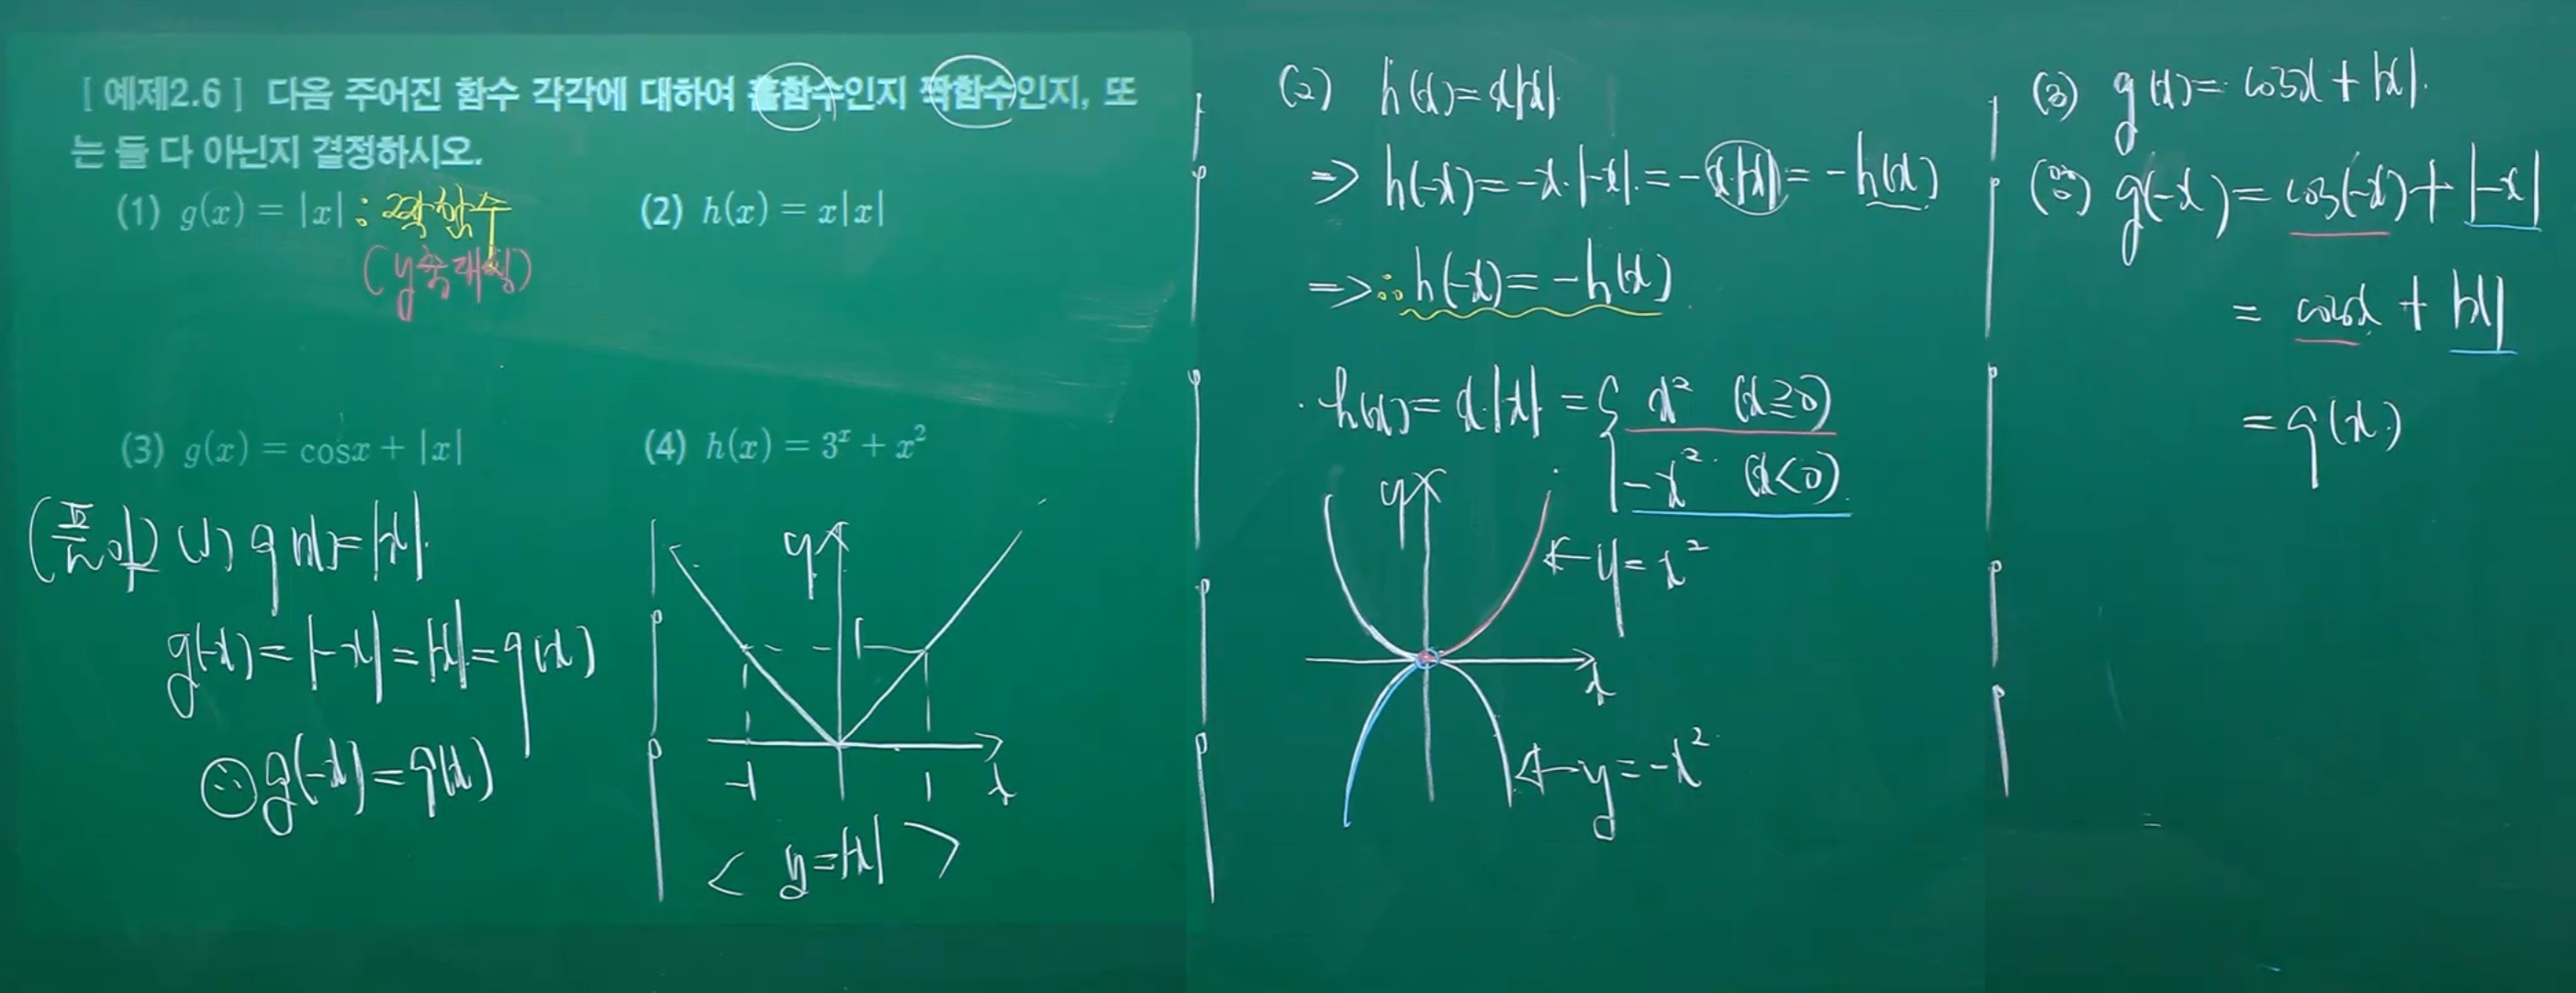 [ 예제2.6 ] 다음 주어진 함수 각각에 대하여 홀함수인지 짝함수인지, 또
는 둘 다 아닌지 결정하시오.
(1) g(x) = |x| : 짝함수
(y축대칭)
(2) h(x) = x|x|
(3) g(x) = cosx + |x|
(4) h(x) = 3^x + x^2
(풀이) (1) g(x) = |x|.
g(-x) = |-x| = |x| = g(x)
∴ g(-x) = g(x)
y
1
-1 1 x
< y=|x| >
(2) h(x) = x|x|
⇒ h(-x) = -x·|-x| = -x|x| = -h(x)
⇒ ∴ h(-x) = -h(x)
· h(x) = x·|x| = { x^2 (x≥0)
-x^2 (x<0)
y
← y = x^2
x
← y = -x^2
(3) g(x) = cosx + |x|.
g(-x) = cos(-x) + |-x|
= cosx + |x|
= g(x)